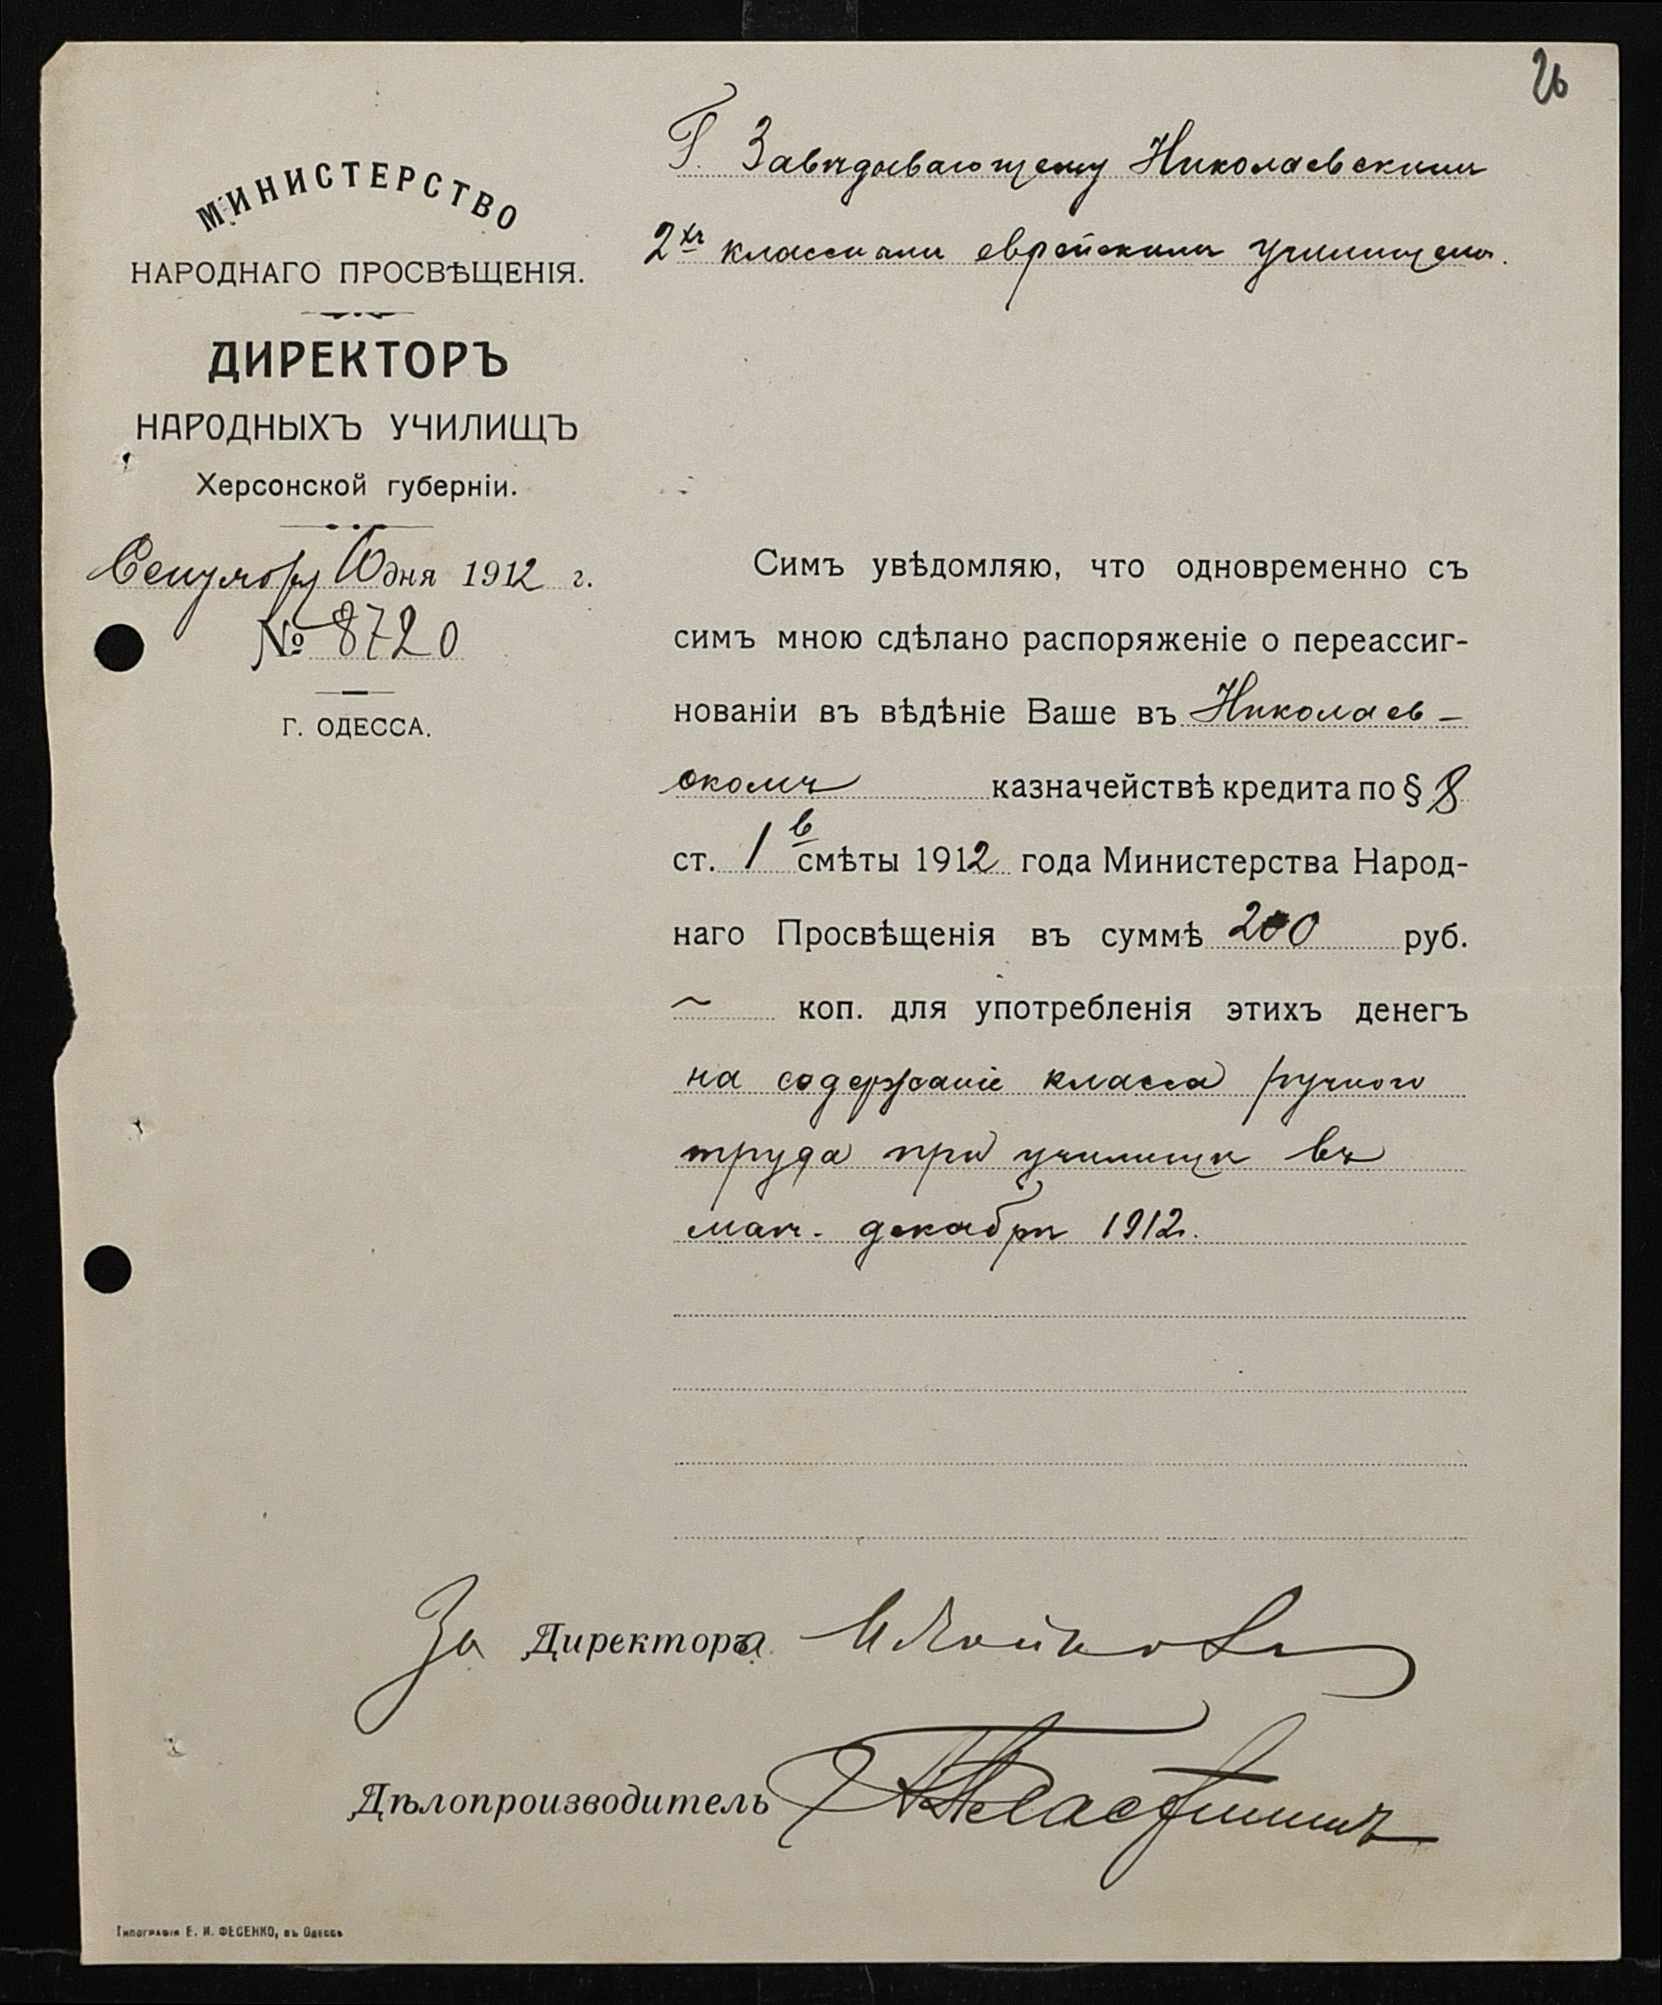 26
МИНИСТЕРСТВО
НАРОДНАГО ПРОСВѢЩЕНІЯ.
ДИРЕКТОРЪ
НАРОДНЫХЪ УЧИЛИЩЪ
Херсонской губерніи.
Сентября 10 дня 1912 г.
№ 8720
Г. ОДЕССА.
Г. Завѣдывающему Николаевскимъ
2хъ класснымъ еврейскимъ училищемъ.
Симъ увѣдомляю, что одновременно съ
симъ мною сдѣлано распоряженіе о переассиг-
нованіи въ вѣдѣніе Ваше въ Николаев-
скомъ казначействѣ кредита по § 8
ст. 1 в смѣты 1912 года Министерства Народ-
наго Просвѣщенія въ суммѣ 200 руб.
~ коп. для употребленія этихъ денегъ
на содержаніе класса ручного
труда при училищѣ въ
маѣ - декабрѣ 1912.
За Директора
Дѣлопроизводитель
Типографія Е. И. ФЕСЕНКО, въ Одессѣ